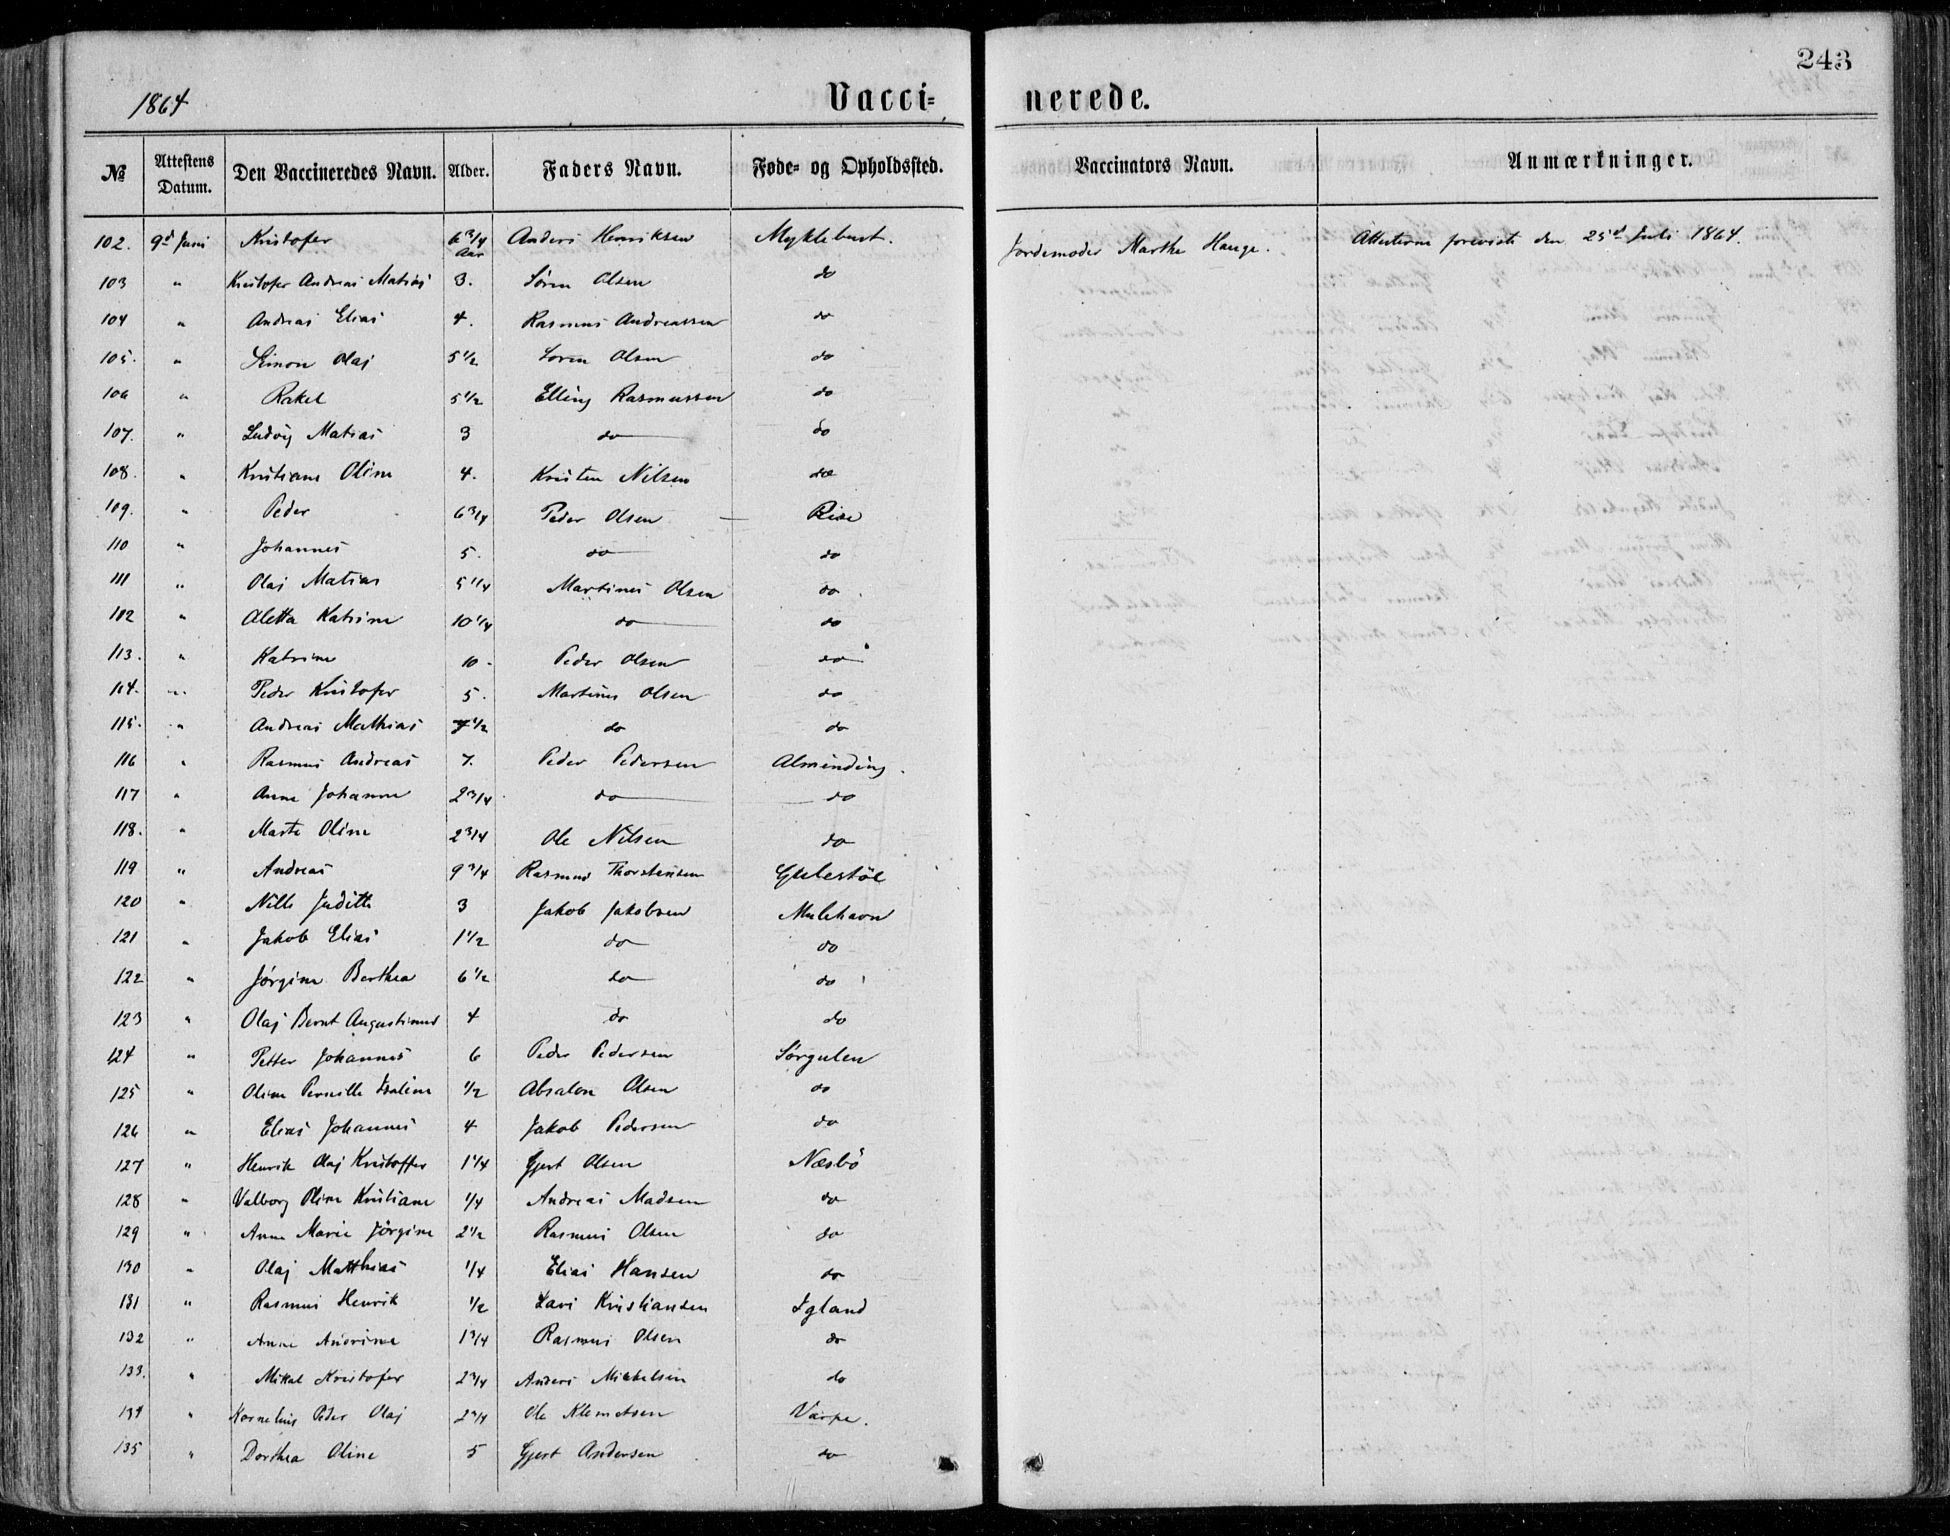 243
1864 Vacci= nerede.
№ Attestens Datum. Den Vaccineredes Navn. Alder. Faders Navn. Føde- og Opholdssted. Vaccinators Navn. Anmærkninger.
102. 9d Juni Kristofer 6 3/4 Aar Anders Henriksen Myklebust. Jordemoder Marthe Hauge. Attesterne foreviste den 25d Juli 1864.
103 " Kristofer Andreas Matias 3. Søren Olsen do
104 " Andreas Elias 4. Rasmus Andreassen do
105. " Simon Olaj 5 1/2 Søren Olsen do
106 " Rakel 5 1/2 Elling Rasmussen do
107. " Ludvig Matias 3 do do
108. " Kristiane Oline 4. Kristen Nilsen do
109. " Peder 6 3/4 Peder Olsen — Rise
110 " Johannes 5. do do
111 " Olaj Matias 5 1/4 Martinus Olsen do
112 " Aletta Katrine 10 1/4 do do
113. " Katrine 10 Peder Olsen do
114. " Peder Kristofer 5. Martinus Olsen do
115. " Andreas Mathias 7 1/2 do do
116 " Rasmus Andreas 7. Peder Pedersen Almending.
117 " Anne Johanne 2 3/4 do do
118. " Marte Oline 2 3/4 Ole Nilsen do
119 " Andreas 9 3/4 Rasmus Thorstensen Gulestöl
120 " Nille Judith 3 Jakob Jakobsen Mulehavn
121 " Jakob Elias 1 1/2 do do
122 " Jørgine Berthea 6 1/2 do do
123 " Olaj Bernt Augustinus 4 do do
124 " Petter Johannes 6 Peder Pedersen Sørgulen
125 " Oline Pernille 1/2 Absalon Olsen do
126 " Elias Johannes 4 Jakob Pedersen do
127 " Henrik Olaj Kristoffer 1 1/4 Gjert Olsen Næsbö
128 " Valborg Oline Kristiane 1/4 Andreas Madsen do
129 " Anne Marie Jörgine 2 1/2 Rasmus Olsen do
130 " Olaj Matthias 1/4 Elias Hansen do
131 " Rasmus Henrik 1/2 Lars Kristiansen Igland
132 " Anne Andrine 1 3/4 Rasmus Olsen do
133. " Mikal Kristofer 2 3/4 Anders Mikkelsen do
134 " Kornelius Peder Olaj 2 3/4 Ole Klemetsen Varpe.
135 " Dorthea Oline 5 Gjert Andersen do